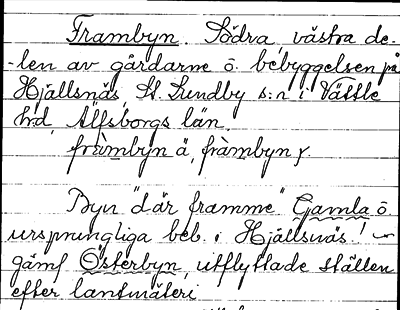 Frambyn. Södra västra de-
-len av gårdarne o. bebyggelsen på
Hjällsnäs, St. Lundby s:n i Vättle
hd, Älfsborgs län.
frambyn ä, frambyn y.
Byn "där framme" Gamla o
ursprungliga beb. i Hjällsnäs!
jämf Österbyn, utflyttade ställen
efter lantmäteri